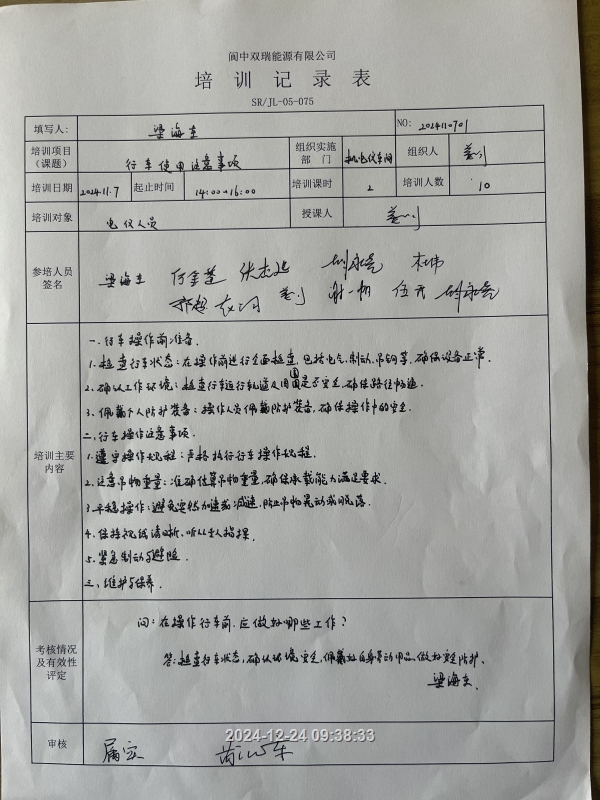 阆中双瑞能源有限公司
培训记录表
SR/JL-05-075
填写人: 梁海东 NO: 2024110701
培训项目（课题） 行车使用注意事项 组织实施部门 机电仪车间 组织人
培训日期 2024.11.7 起止时间 14:00→16:00 培训课时 2 培训人数 10
培训对象 电仪人员 授课人
参培人员签名 梁海东
培训主要内容
一.行车操作前准备.
1.检查行车状态:在操作前进行全面检查,包括电气,制动,吊钩等,确保设备正常.
2.确认工作环境:检查行车运行轨道及周围是否安全,确保路径畅通.
3.佩戴个人防护装备:操作人员佩戴防护装备,确保操作中的安全.
二.行车操作注意事项.
1.遵守操作规程:严格执行行车操作规程.
2.注意吊物重量:准确估算吊物重量,确保承载能力满足要求.
3.平稳操作:避免突然加速或减速,防止吊物晃动或脱落.
4.保持视线清晰,听从专人指挥.
5.紧急制动与避险.
三.维护与保养.
考核情况及有效性评定
问:在操作行车前,应做好哪些工作?
答:检查行车状态,确认环境安全,佩戴好自身劳动用品,做好安全防护.
梁海东.
2024-12-24 09:38:33
审核 属实